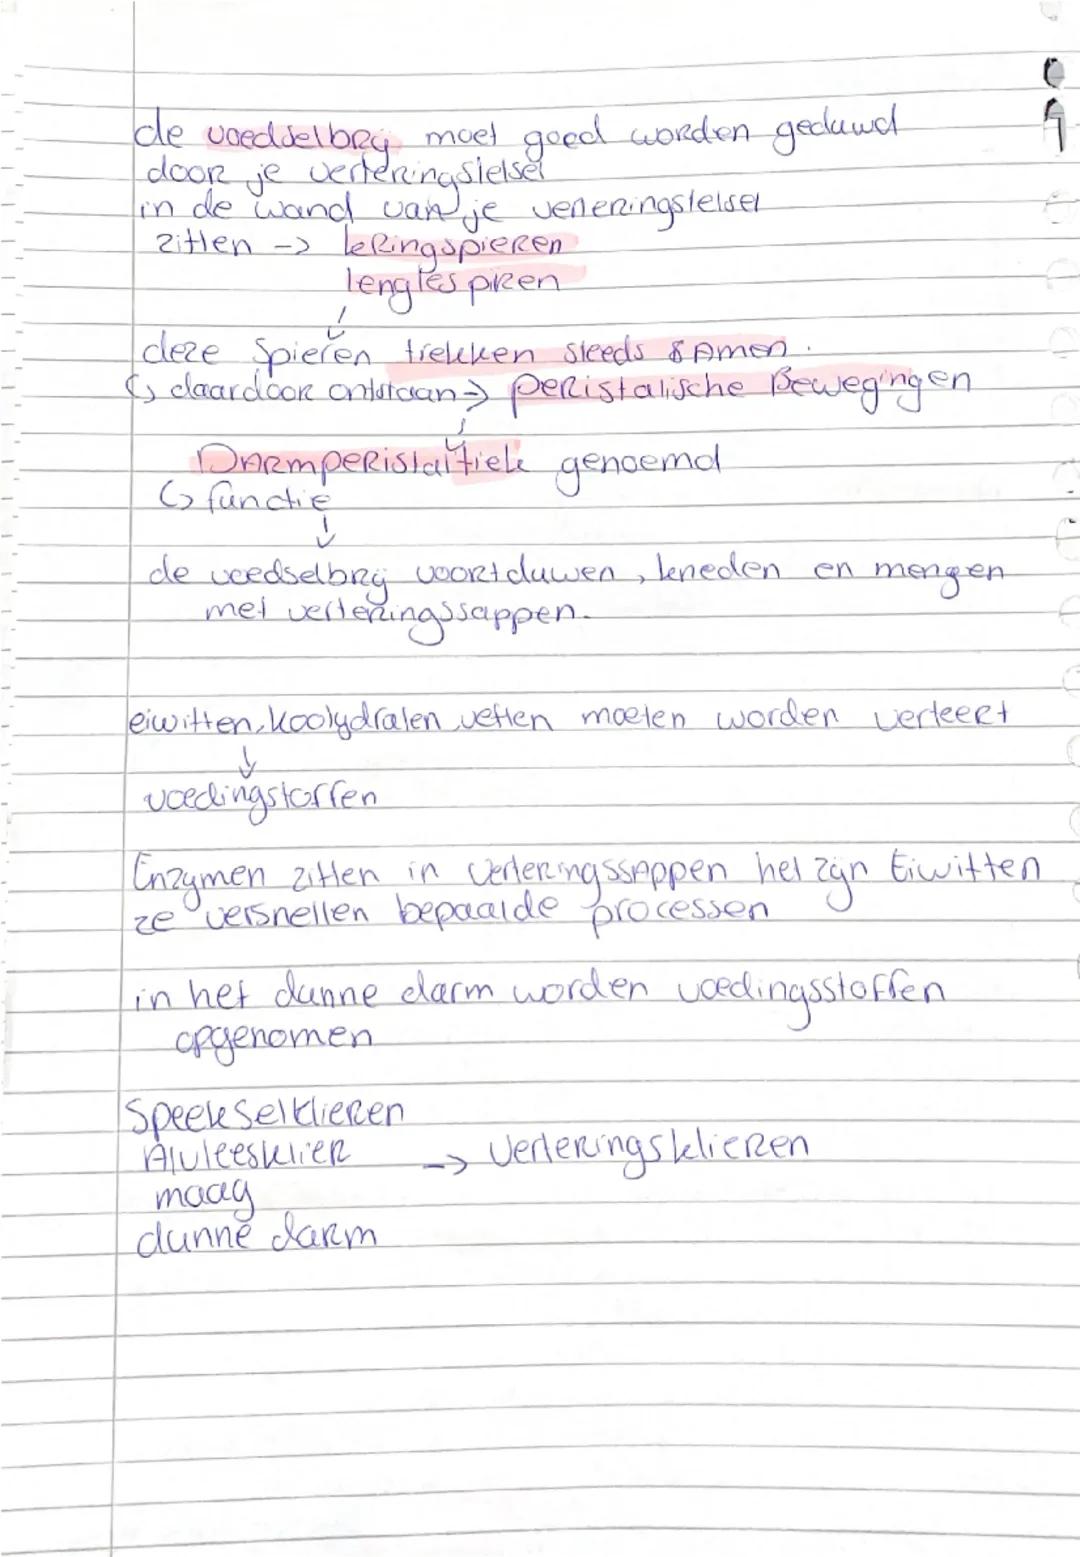 de voedselbrij moet goed worden geduwd
door je verteringstelsel
in de wand van je verteringstelsel
zitten -> kringspieren
lengtespiren
↓
deze spieren trekken steeds samen.
↳ daardoor ontstaan -> peristalische Bewegingen
↓
Darmperistaltiek genoemd
↳ functie
↓
de voedselbrij voortduwen, kneden en mengen
met verteringssappen.
eiwitten, koolydraten vetten moeten worden verteert
↓
voedingstoffen
Enzymen zitten in verteringssappen het zijn Eiwitten
ze versnellen bepaalde processen
in het dunne darm worden voedingsstoffen
opgenomen
Speekselklieren
Alvleesklier -> Verteringsklieren
maag
dunne darm